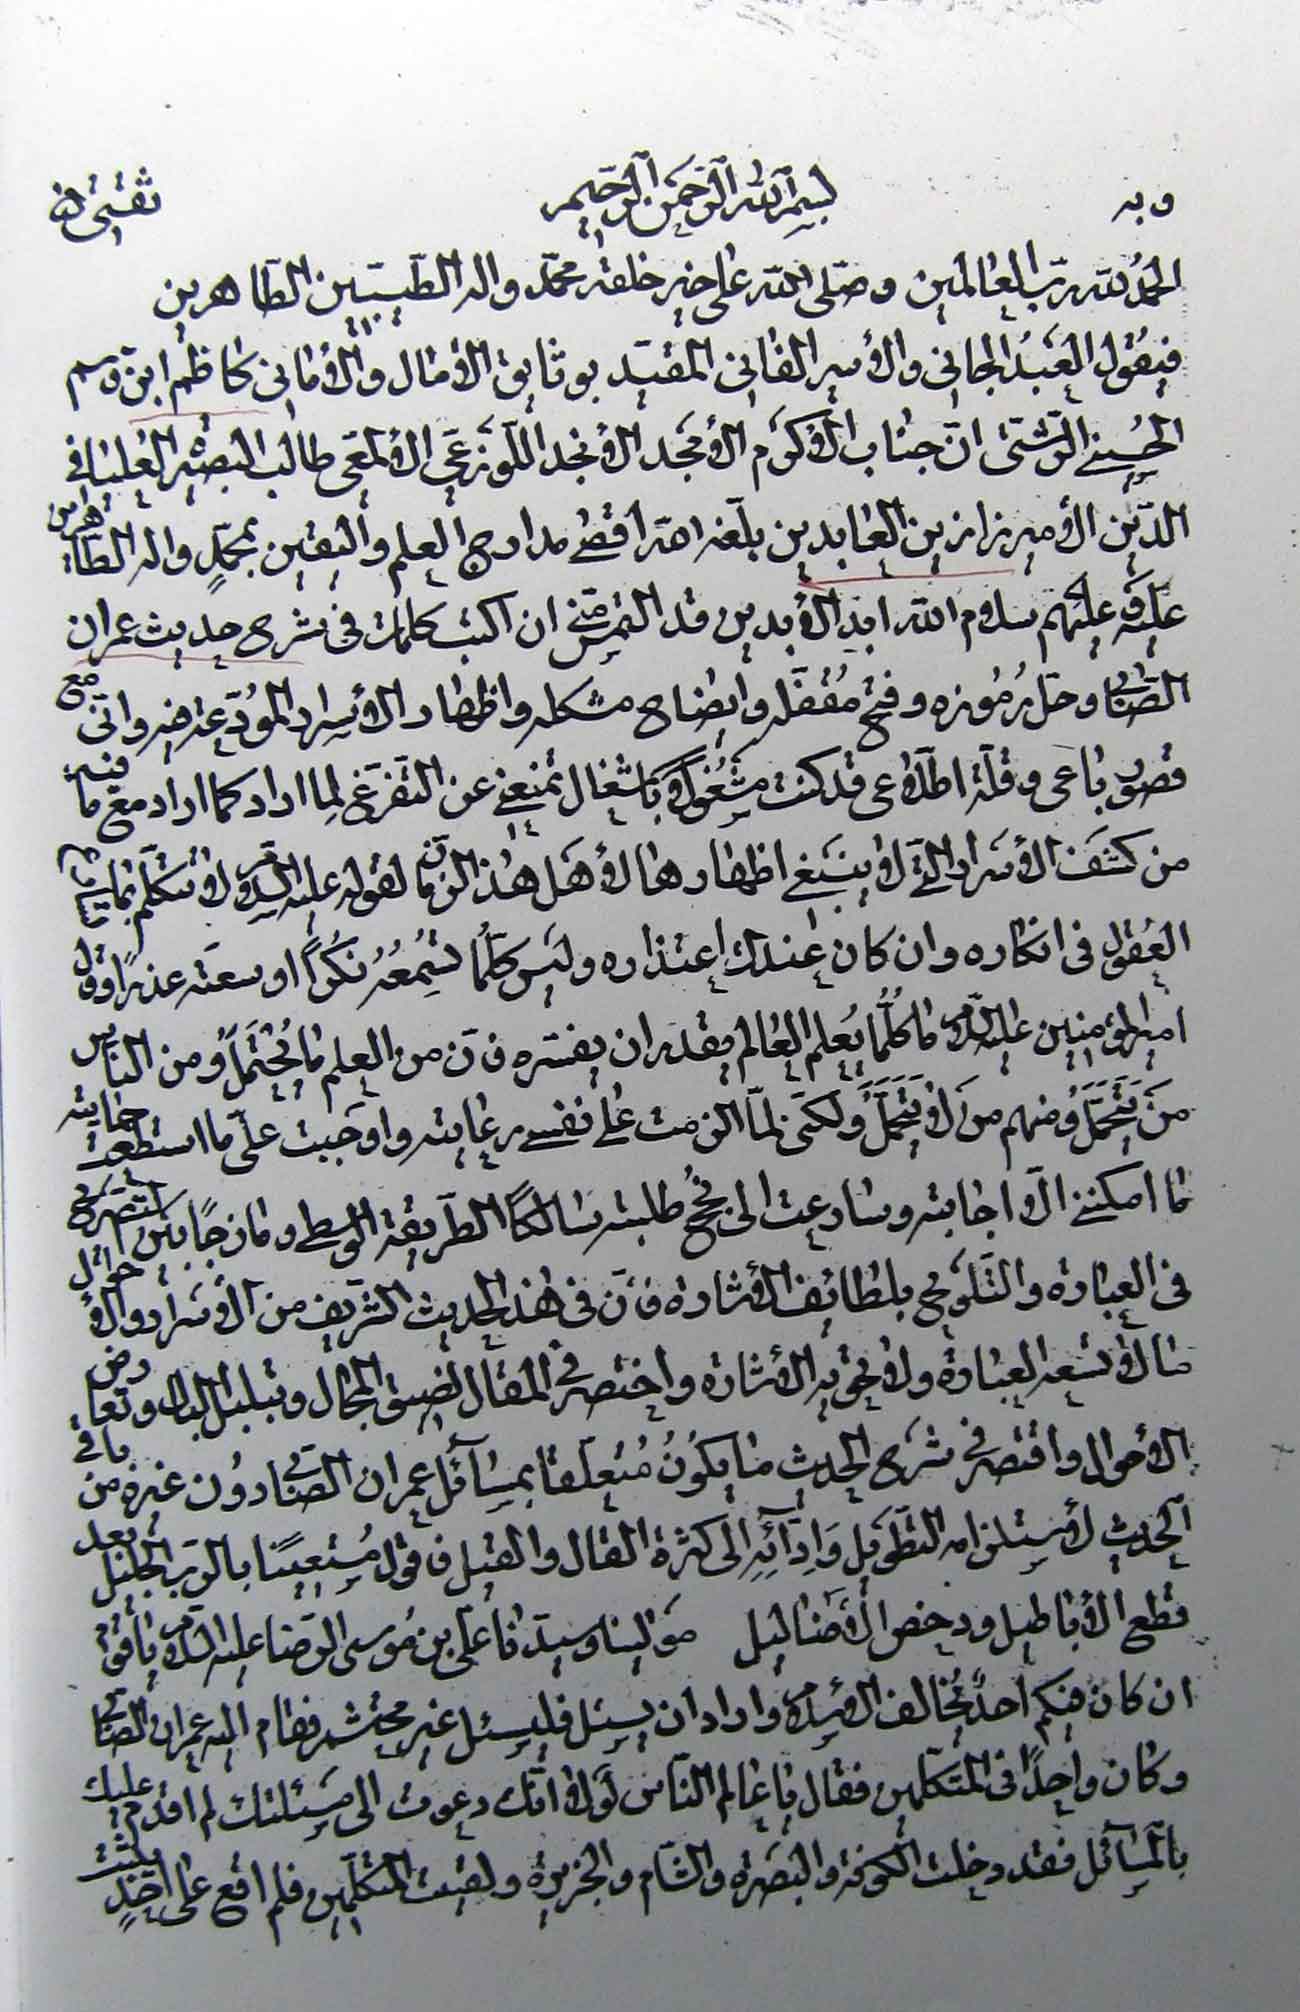 وبه بسم الله الرحمن الرحيم ثقتي
الحمد لله رب العالمين وصلى الله على خير خلقه محمد واله الطيبين الطاهرين
فيقول العبد الجاني والأسير الفاني المقيد بوثايق الأمال والأماني كاظم ابن قاسم
الحسيني الرشتي ان جناب الأكرم الأمجد الأنجد اللوزعي الألمعي طالب البصيرة العليا في
الدين الأميرزا زين العابدين بلغه الله اقصى مدارج العلم واليقين بمحمد واله الطاهرين
عليه وعليهم سلام الله ابد الأبدين قد التمس مني ان اكتب كلمات في شرح حديث عمران
الصابي وحل رموزه وفتح مقفله وايضاح مشكله واظهار الأسرار المودعة فيه واني مع
قصور باعي وقلة اطلاعي قد كنت مشغولا باشغال تمنعني عن التفرغ لما اراد كما اراد مع ما فيه
من كشف الأسرار التي لا ينبغي اظهارها لأهل هذا الزمان لقوله عليه السلام لا تتكلم بما يسارع
العقول في انكاره وان كان عندك اعتذاره وليس كلما تسمعه نكرا اوسعته عذرا وقال
امير المؤمنين عليه السلام ما كلما يعلم العالم يقدر ان يفسره فان من العلم ما يحتمل ومن الناس
من يتحمل ومنهم من لا يتحمل ولكني لما الزمت على نفسي رعايته واوجبت علي ما استطعت حمايته
فما امكنني الا اجابته وسارعت الى نجح طلبته سالكا الطريقة الوسطى ومازجا بين التصريح
في العبارة والتلويح بلطائف الأشارة فان في هذا الحديث الشريف من الأسرار والأحوال
ما لا تسعه العبارة ولا تحويه الأشارة واختصر في المقال لضيق المجال وتبلبل البال وتعارض
الأحوال واقتصر في شرح الحديث ما يكون متعلقا بمسائل عمران الصابي دون غيره من ما في
الحديث لأستلزامه التطويل وادائه الى كثرة القال والقيل فاقول مستعينا بالرب الجليل بعد
قطع الأباطيل ودحض الأضاليل مولينا وسيدنا علي بن موسى الرضا عليه السلام يا قوم
ان كان فيكم احد يخالف الأسلام واراد ان يسئل فليسئل غير محتشم فقام اليه عمران الصابي
وكان واحدا في المتكلمين فقال يا عالم الناس لولا انك دعوت الى مسئلتك لم اقدم عليك
بالمسائل فقد دخلت الكوفة والبصرة والشام والجزيرة ولقيت المتكلمين فلم اقع على احد يثبت